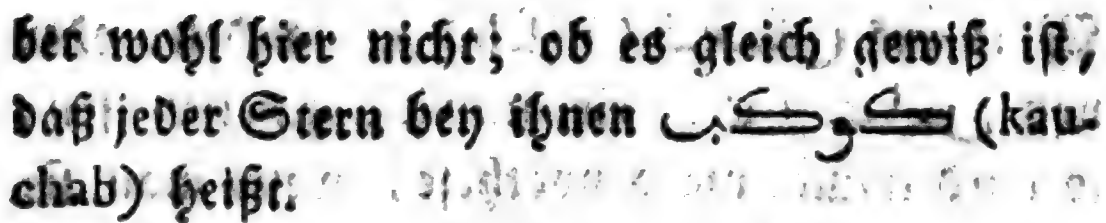 ber wohl hier nicht; ob es gleich gewiß ist,
daß jeder Stern bey ihnen كوكب (kau-
chab) heißt.